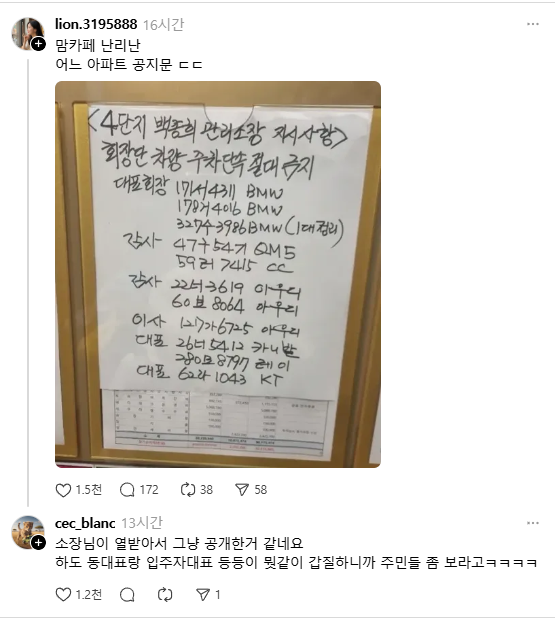 lion.3195888 16시간
맘카페 난리난
어느 아파트 공지문 ㄷㄷ
<4단지 백종희 관리소장 지시사항>
회장단 차량 주차단속 절대 금지
대표회장 17서4311 BMW
178거4016 BMW
327수3986 BMW (1대정리)
감사 47구5471 QM5
59러7415 CC
감사 22더3619 아우디
60보8064 아우디
이사 127가6725 아우디
대표 26더5412 카니발
280모8797 레이
대표 62라1043 KT
1.5천 172 38 58
cec_blanc 13시간
소장님이 열받아서 그냥 공개한거 같네요
하도 동대표랑 입주자대표 등등이 뭣같이 갑질하니까 주민들 좀 보라고ㅋㅋㅋㅋ
1.2천 1